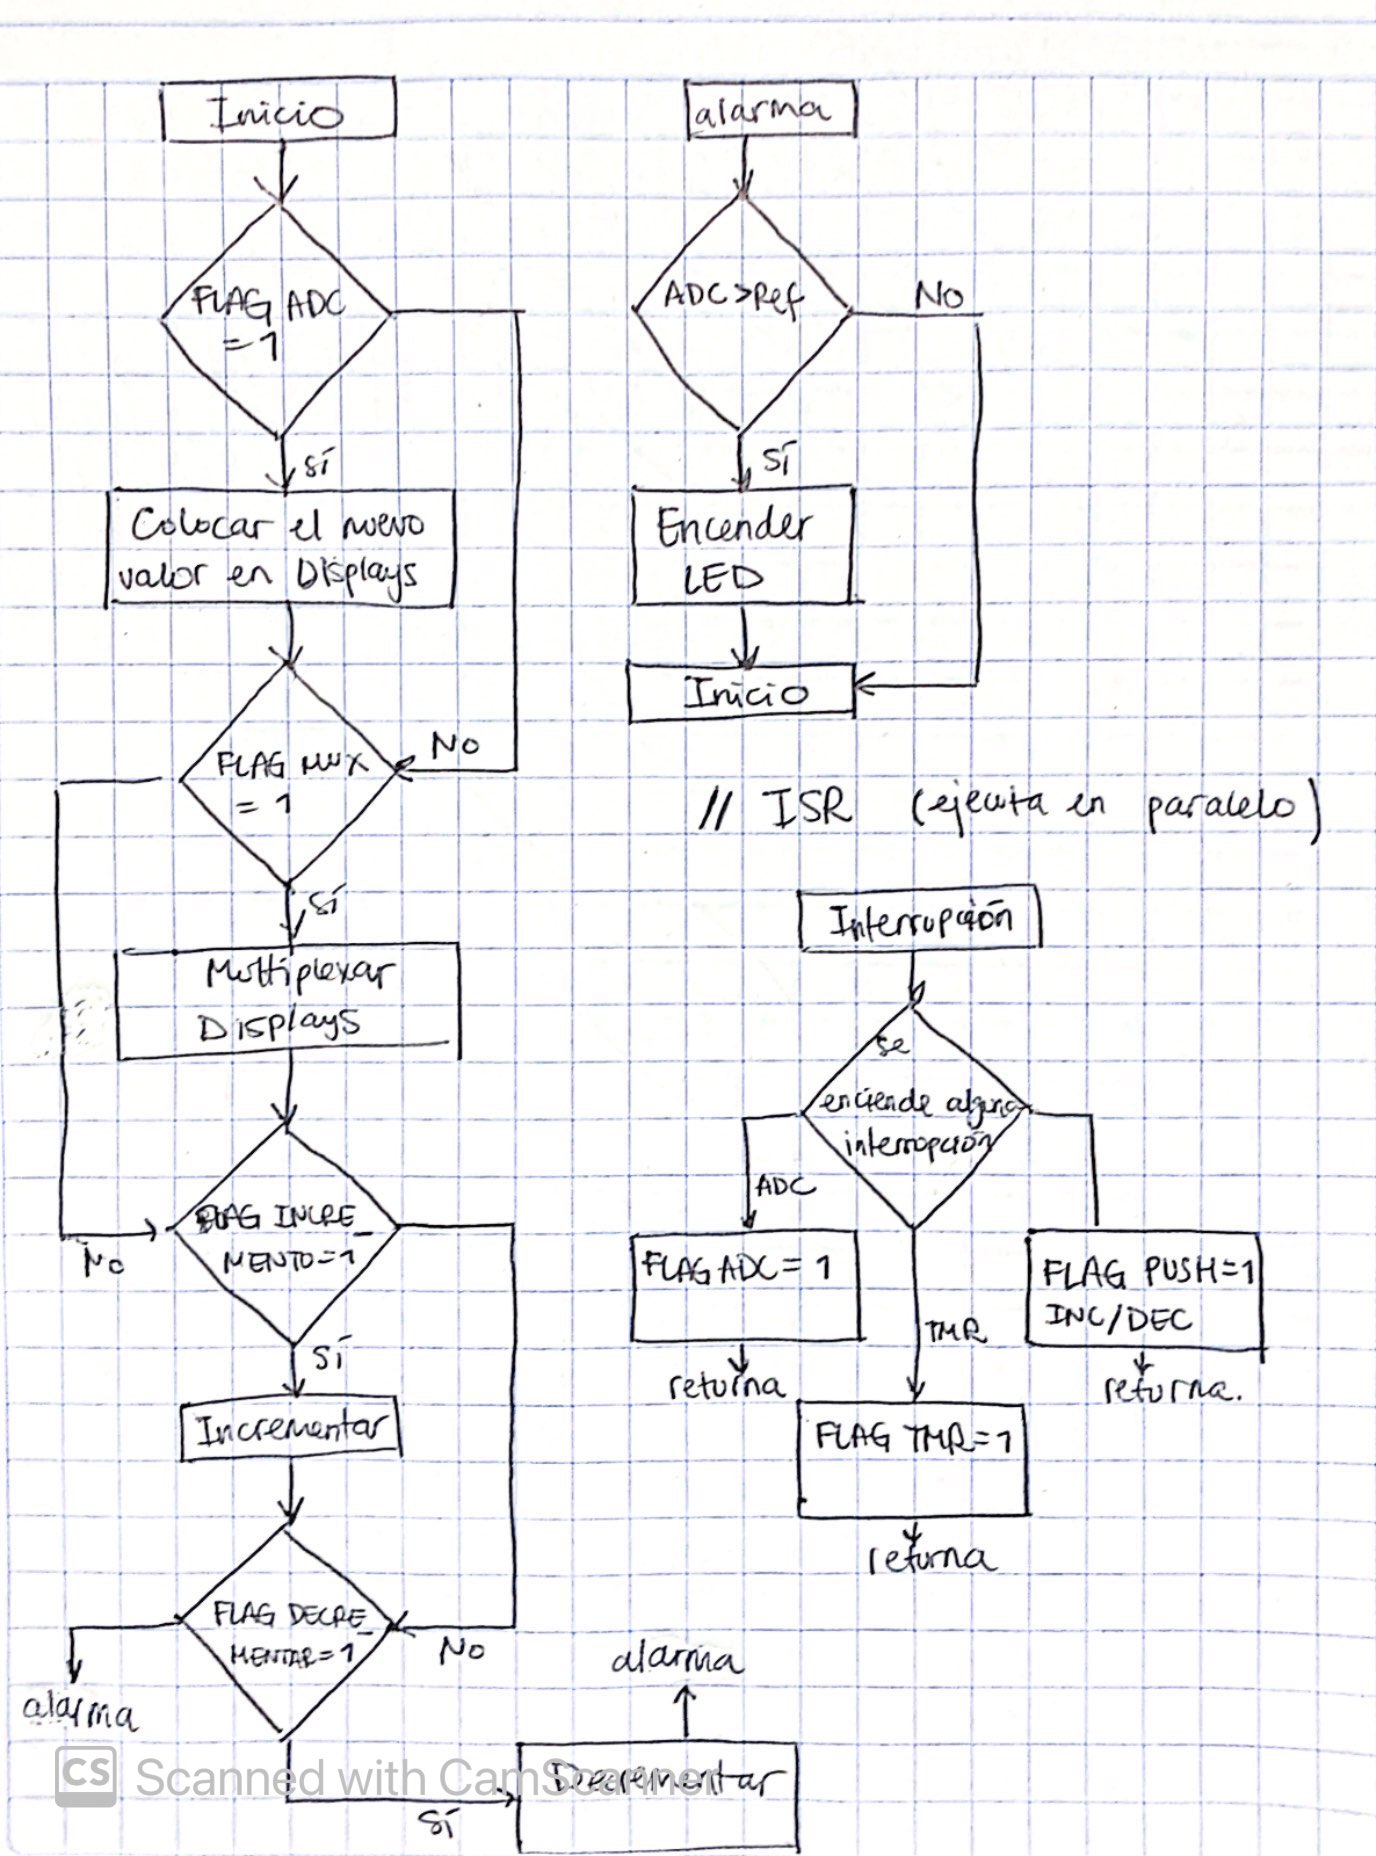 Inicio
FLAG ADC
= 1
Sí
Colocar el nuevo
valor en Displays
No
FLAG MUX
= 1
Sí
Multiplexar
Displays
FLAG INCRE_
MENTO=1
No
Sí
Incrementar
FLAG DECRE_
MENTAR=1
No
alarma
Sí
Decrementar
alarma
alarma
ADC>Ref
No
Sí
Encender
LED
Inicio
// ISR (ejecuta en paralelo)
Interrupción
se
enciende alguna
interrupción
ADC
FLAG ADC = 1
returna
TMR
FLAG TMR=1
returna
FLAG PUSH=1
INC/DEC
returna.
CS Scanned with CamScanner